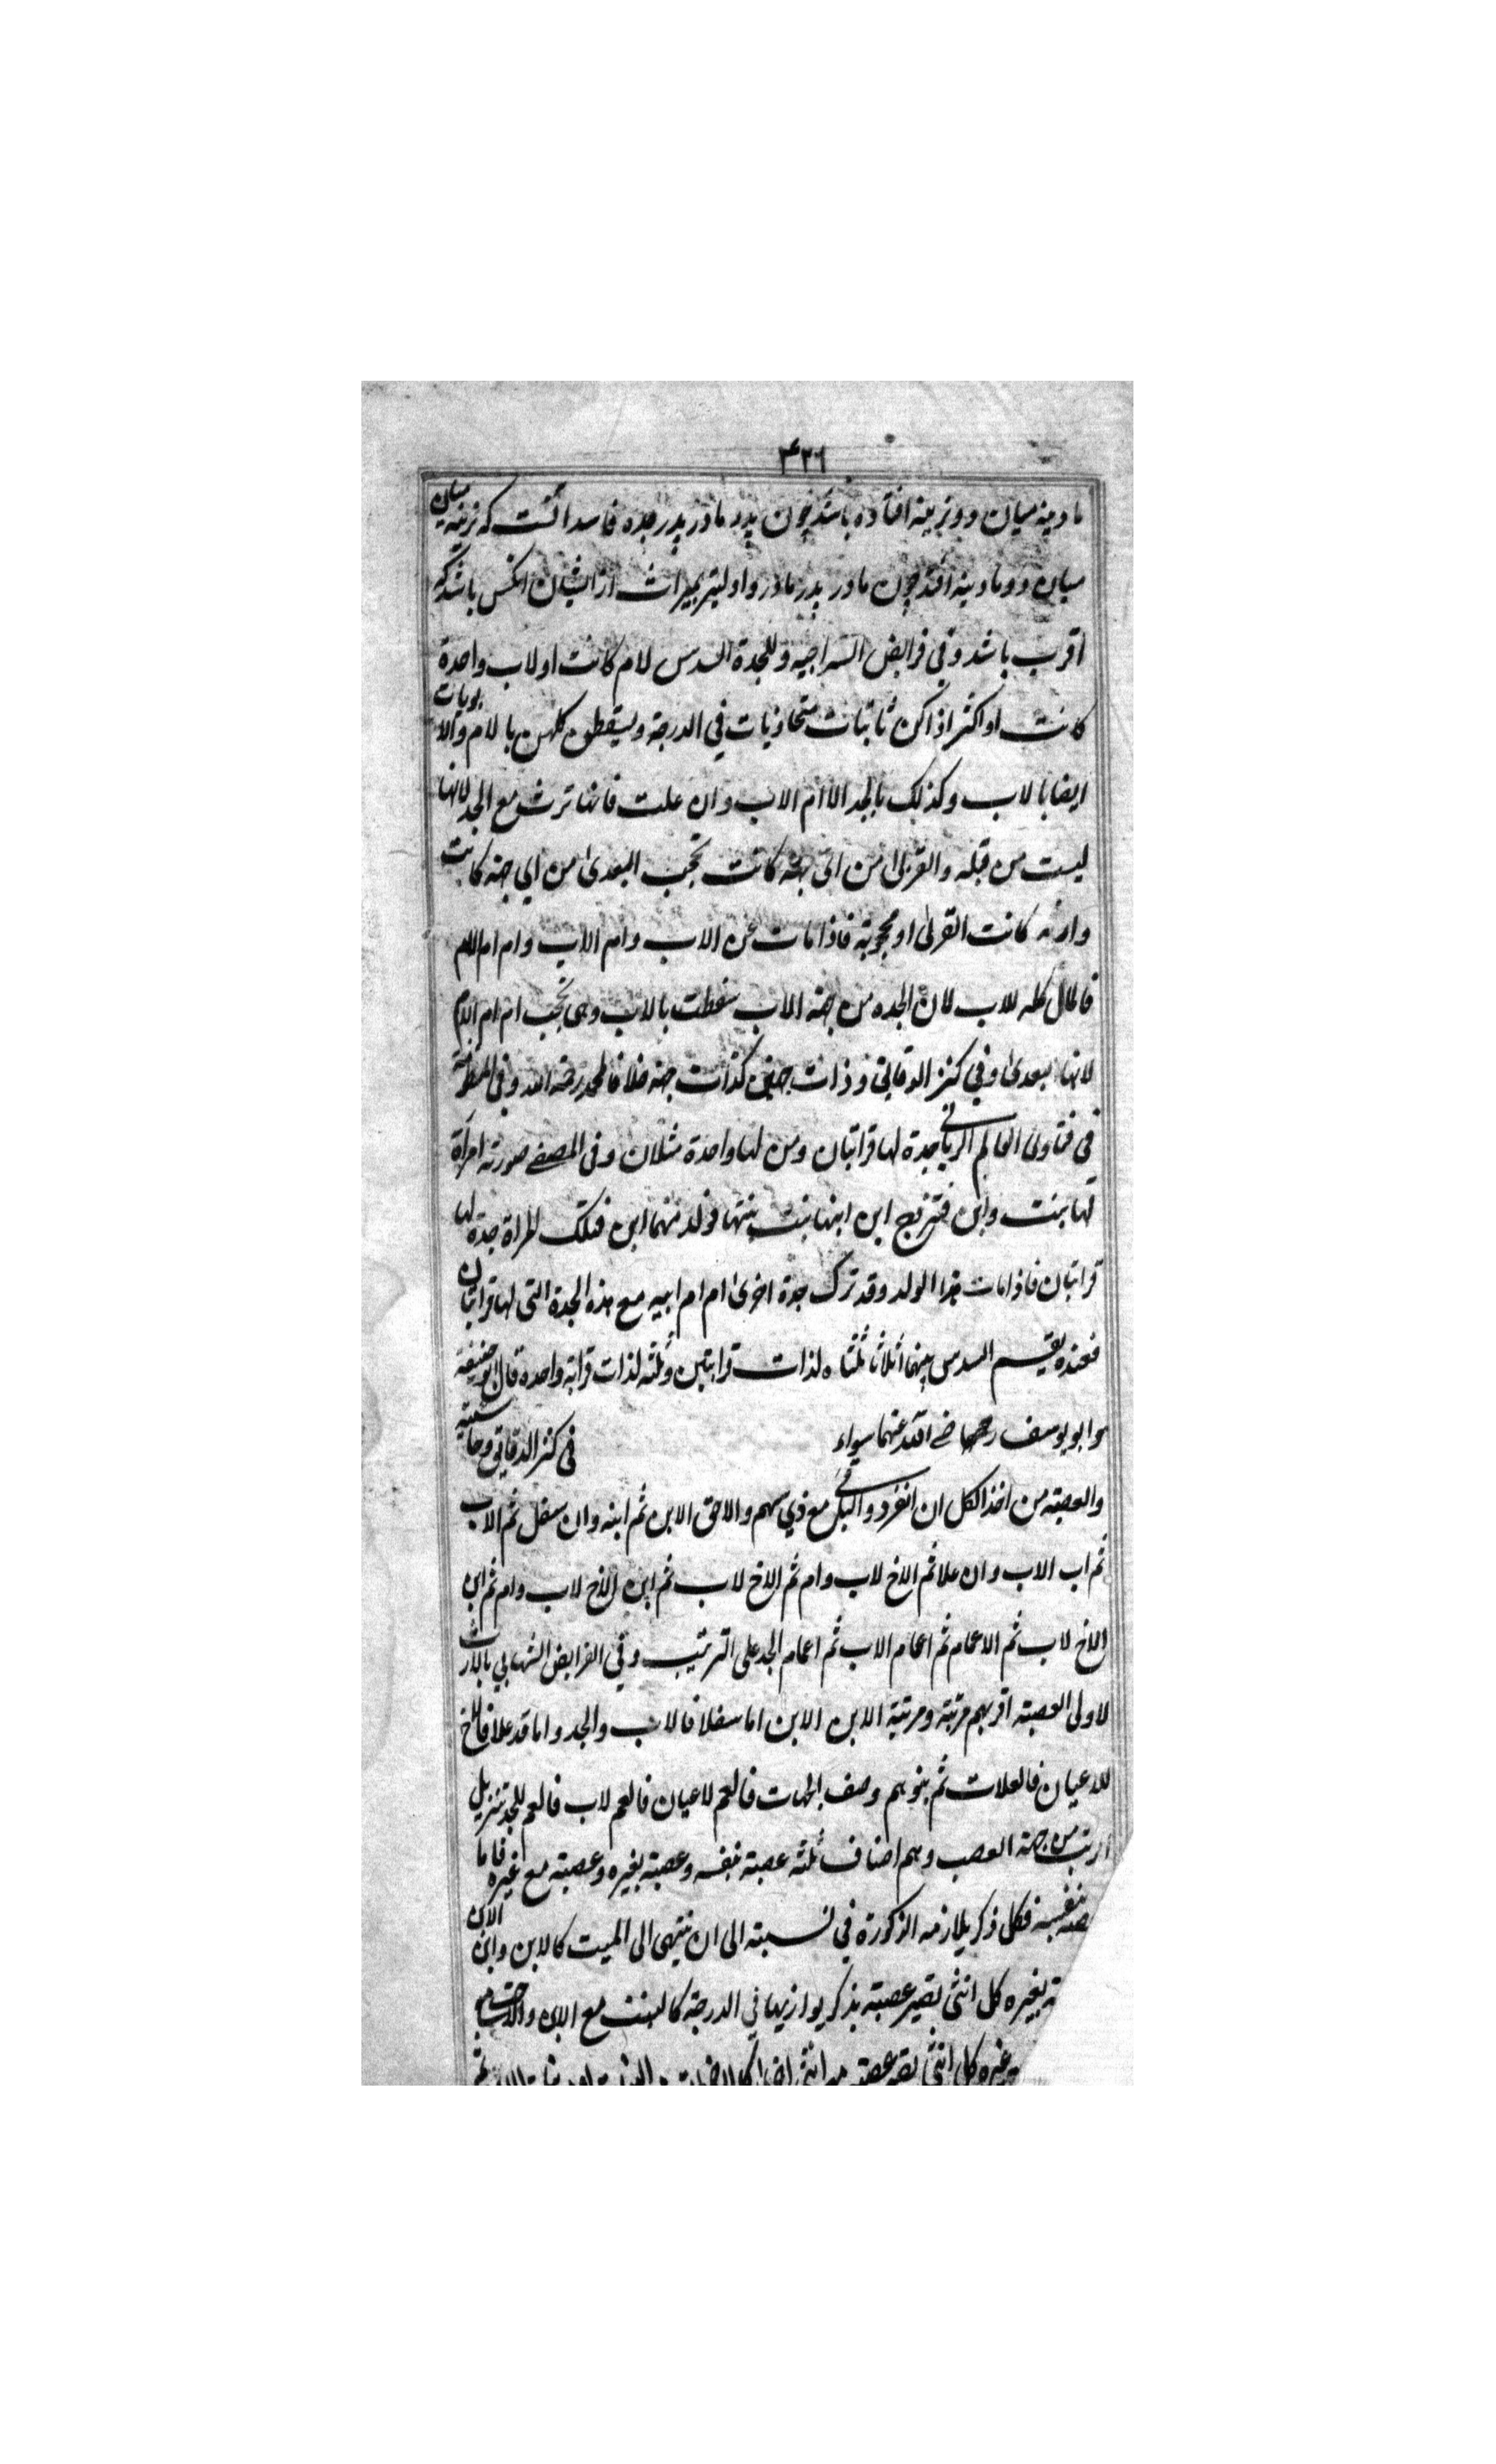 ۴۳۶
مادینه میان دو نرینه افتاده باشد چون پدر مادر پدر جده فاسد انست که نرینه میان
میان دو مادینه افتد چون مادر پدر مادر و اولیتر بمیراث از ایشان انکس باشد که
اقرب باشد وفی فرایض السراجیه وللجدة السدس لام کانت او لاب واحدة
کانت او اکثر اذا کن ثابتات متحاذیات فی الدرجة ویسقطون کلهن بالام والابویات
ایضا بالاب وکذلک بالجد الا ام الاب وان علت فانها ترث مع الجد لانها
لیست من قبله والقربی من ای جهة کانت تحجب البعدی من ای جهة کانت
وارثه کانت القربی او محجوبة فاذا مات عن الاب وام الاب وام ام الام
فالمال کله للاب لان الجده من جهة الاب سقطت بالاب وهی تحجب ام ام الام
لانها بعدی وفی کنز الدقایق وذات جهتین کذات جهة خلافا لمحمد رحمة الله وفی
فی فتاوی العالم الربانی جدة لها قرابتان ومن لها واحدة مثلان وفی المصفی صورته امرأة
لها بنت وابن فتزوج ابن ابنها بنت بنتها فولد منهما ابن فتلک المراة جدة لها
قرابتان فاذا مات هذا الولد وقد ترک جدة اخری ام ام ابیه مع هذه الجدة التی لها قرابتان
فعنده یقسم السدس بینهما اثلاثا ثلثاه لذات قرابتین وثلثه لذات قرابة واحدة قال ابو حنیفة
وابو یوسف عنهما سواء فی کنز الدقایق وحاشیته
والعصبة من اخذ الکل ان انفرد والباقی مع ذی سهم والاحق الابن ثم ابنه وان سفل ثم الاب
ثم اب الاب وان علا ثم الاخ لاب وام ثم الاخ لاب ثم ابن الاخ لاب وام ثم ابن
الاخ لاب ثم الاعمام ثم اعمام الاب ثم اعمام الجد علی الترتیب وفی الفرایض الشهابی بالارث
لاولی العصبة اقربهم مرتبة ومرتبة الابن الابن اما سفلا فالاب والجد واما قد علا فالاخ
للاعیان فالعلات ثم بنوهم وصف الجهات فالعم لاعیان فالعم لاب فالعم للجد تنزیل
من جهة العصب وهم اصناف ثلثه عصبة بنفسه وعصبة بغیره وعصبة مع غیره فاما
بنفسه فکل ذکر یلازمه الذکورة فی نسبته الی ان ینتهی الی المیت کالابن وابن الابن
بغیره کل انثی یصیر عصبة بذکر یوازیها فی الدرجة کالبنت مع الابن والاخت
غیره کل انثی